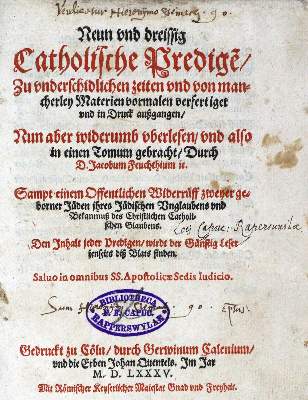 Neun vnd dreissig
Catholische Predigẽ/
Zu vnderschidlichen zeiten vnd von man-
cherley Materien vormalen verfertiget
vnd in Druck außgangen/
Nun aber widerumb vberlesen/ vnd also
in einen Tomum gebracht/ Durch
D. Jacobum Feuchthium ꝛc.
Sampt einem Offentlichen Widerrüff zweyer ge-
borner Jüden jhres Jüdischen Vnglaubens vnd
Bekantnuß des Christlichen Catholi-
schen Glaubens.
Loci Capuc: Rapersuilla
Den Inhalt jeder Predigen/ wirdt der Günstig Leser
jenseits diß Blats finden.
Saluo in omnibus SS. Apostolicæ Sedis Iudicio.
Sum 90.
BIBLIOTHECA
P. P. CAPUC.
RAPPERSWYLAE
Gedruckt zu Cöln/ durch Gerwinum Calenium/
vnd die Erben Johan Quentels. Im Jar
M. D. LXXXV.
Mit Römischer Keyserlicher Maiestat Gnad vnd Freyheit.